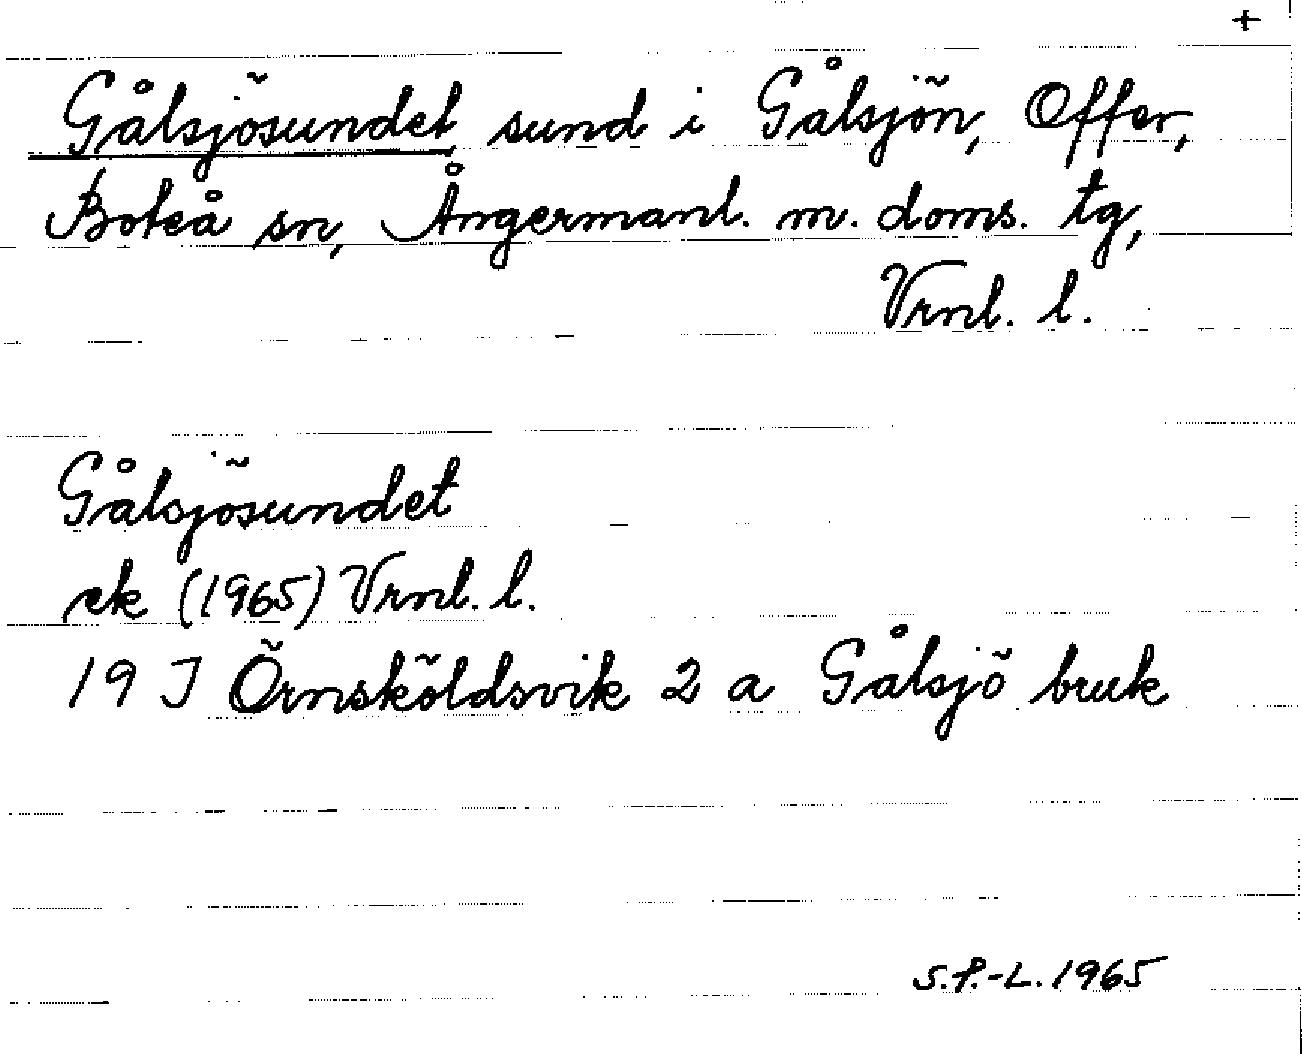 +
Gålsjösundet, sund i Gålsjön, Offer,
Boteå sn, Ångermanl. m. doms. tg,
Vrnl. l.
Gålsjösundet
ek (1965) Vrnl. l.
19 J Örnsköldsvik 2 a Gålsjö bruk
S.P.-L. 1965